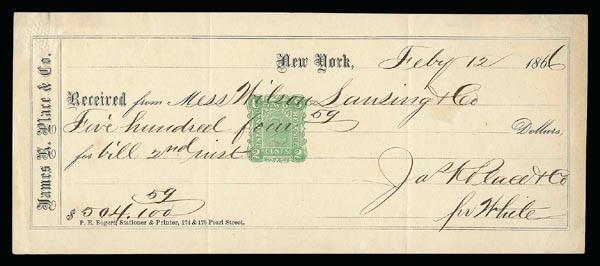 James K. Place & Co.
New York, Feby 12 1866
Received from Mess Wilson Lansing & Co
Five hundred four 59 Dollars,
for bill 2nd inst
2 2
2 CENTS. 2
Jas K Place & Co
$ 504.59/100
pr White
P. E. Bogert, Stationer & Printer, 174 & 176 Pearl Street.